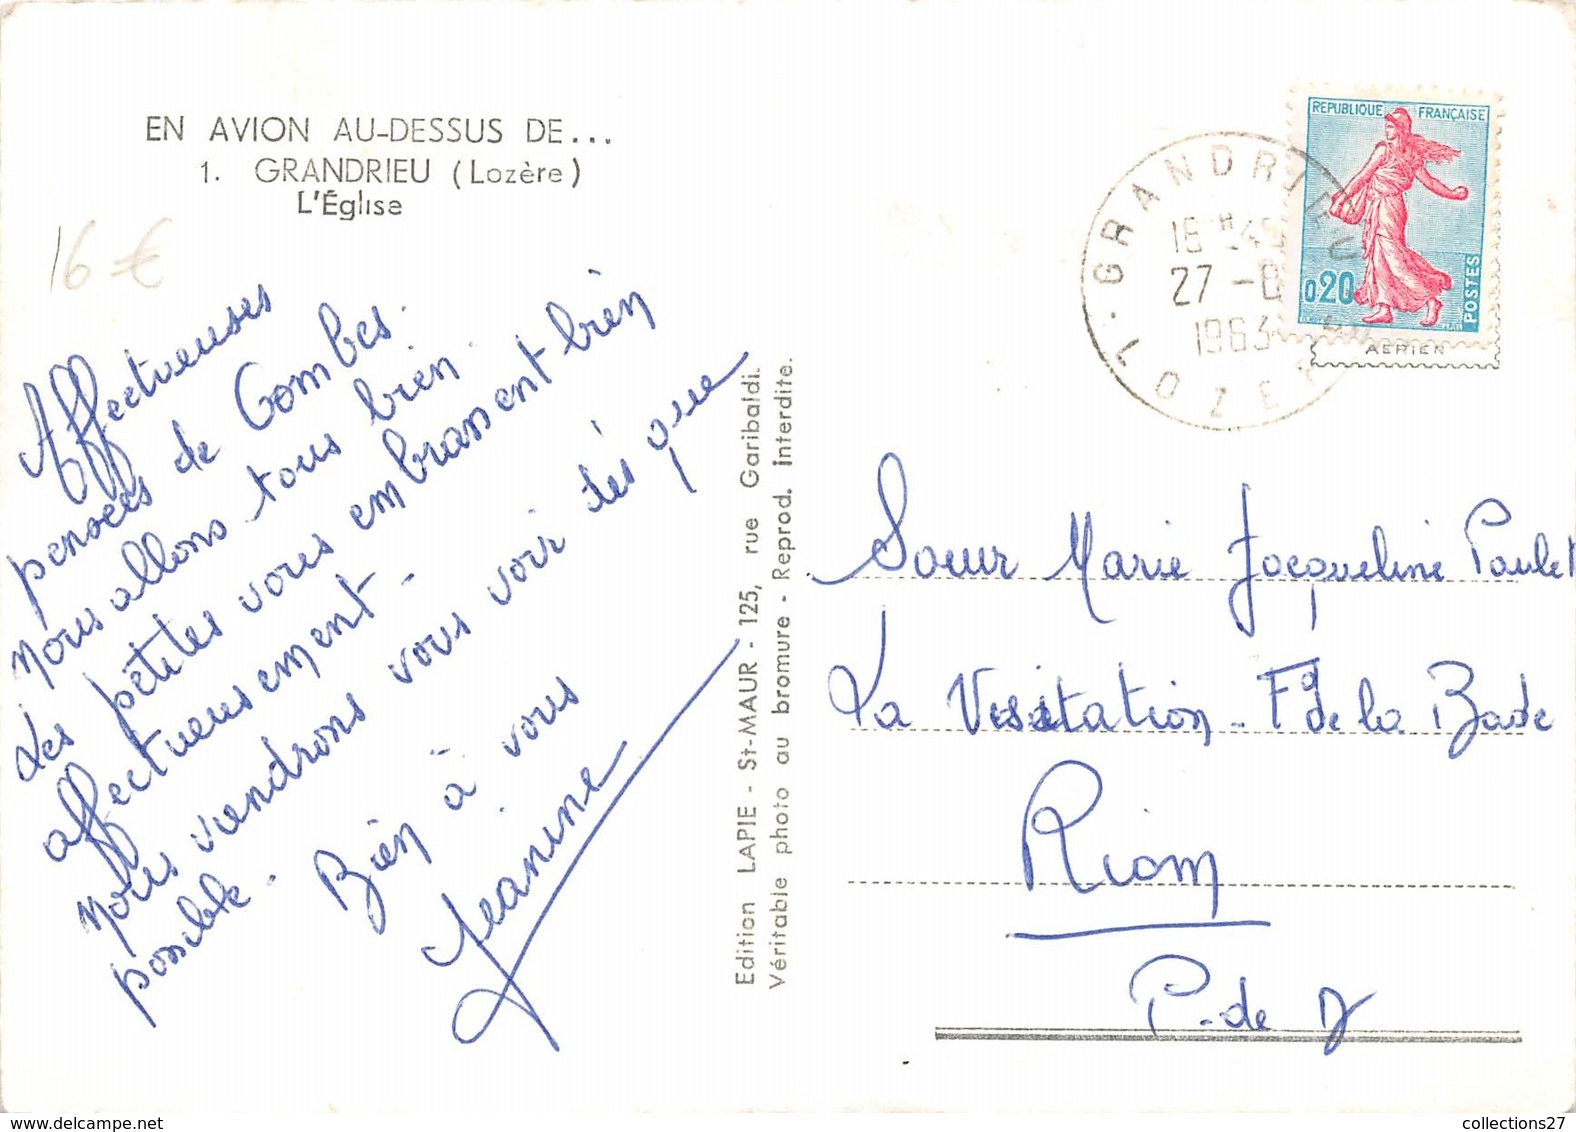 EN AVION AU-DESSUS DE...
1. GRANDRIEU (Lozère)
L'Église
16 €
Affectueuses
pensées de Combes.
Nous allons tous bien.
Les petites vous embrassent bien
affectueusement -
Nous viendrons vous voir dès que
possible - Bien à vous
Jeanine
Edition LAPIE - St-MAUR - 125, rue Garibaldi.
Véritable photo au bromure - Reprod. Interdite.
GRANDRIEU
LOZERE
27 -8
1963
REPUBLIQUE FRANÇAISE
0,20
POSTES
AERIEN
Soeur Marie Jacqueline Paulet
La Visitation - Fg de la Bade
Riom
P. de D
collections27